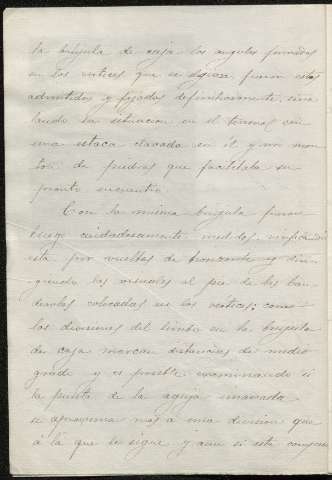 la brújula de caja los angulos formados
en los vertices que se fueron estos
advertidos y fijados definitivamente, seña
lando la situacion en el terreno con
una estaca clavada en él y un mon
ton de piedras que facilitaba su
pronto encuentro.
Con la misma brújula fueron
luego cuidadosamente medidos, verificandose
esta por vueltas de horizonte y diri
giendo las visuales al pie de las ban
derolas colocadas en los vertices; como
las divisiones del limbo en la brújula
de caja marcan distancias de medio
grado y es posible, examinando si
la punta de la aguja imanada
se aproxima mas á una division que
á la que le sigue y aun si está